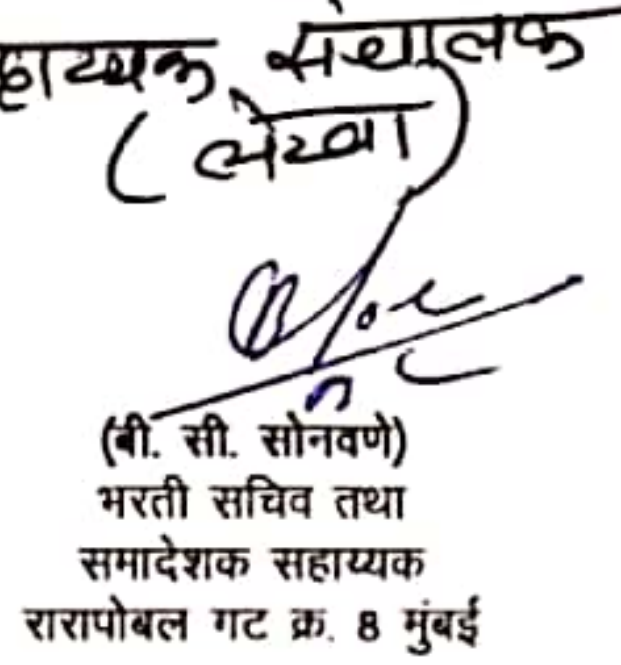 हाय्यक संचालक
(लेखा)
(बी. सी. सोनवणे)
भरती सचिव तथा
समादेशक सहाय्यक
रारापोबल गट क्र. 8 मुंबई